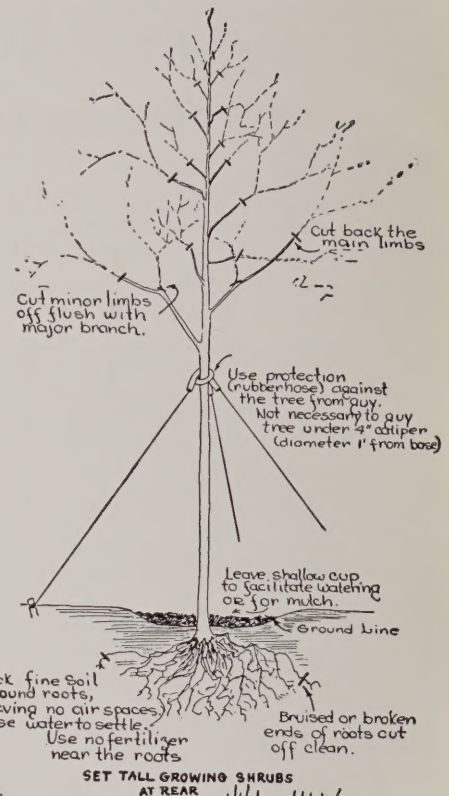 Cut back the
main limbs
Cut minor limbs
off flush with
major branch.
Use protection
(rubberhose) against
the tree from guy.
Not necessary to guy
tree under 4" caliper
(diameter 1' from base)
Leave shallow cup
to facilitate watering
or for mulch.
Ground Line
ck fine soil
ound roots,
aving no air spaces,
se water to settle.
Use no fertilizer
near the roots
Bruised or broken
ends of roots cut
off clean.
SET TALL GROWING SHRUBS
AT REAR